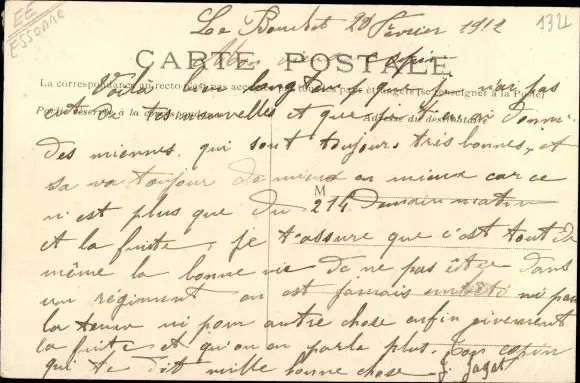 EE
ESSONNE
1324
Le Bouchet 20 Février 1912
CARTE POSTALE
La correspondance au recto n'est pas acceptée par tous les pays étrangers (se renseigner à la Poste)
copin
Voilà bien longt que je n'ai pas
eut de tes nouvelles et que je t'ai donner
Partie réservée à la correspondance
Adresse du destinataire
des miennes, qui sont toujours très bonnes, et
sa va toujour de mieux en mieux car ce
M
n'est plus que du 214 demain matin
et la fuite, je t'assure que c'est tout de
même la bonne vie de ne pas être dans
un régiment on est jamais ni par
la tenue ni pour autre chose enfin vivement
la fuite et qu'on en parle plus. Ton copin
qui te dit mille bonne chose